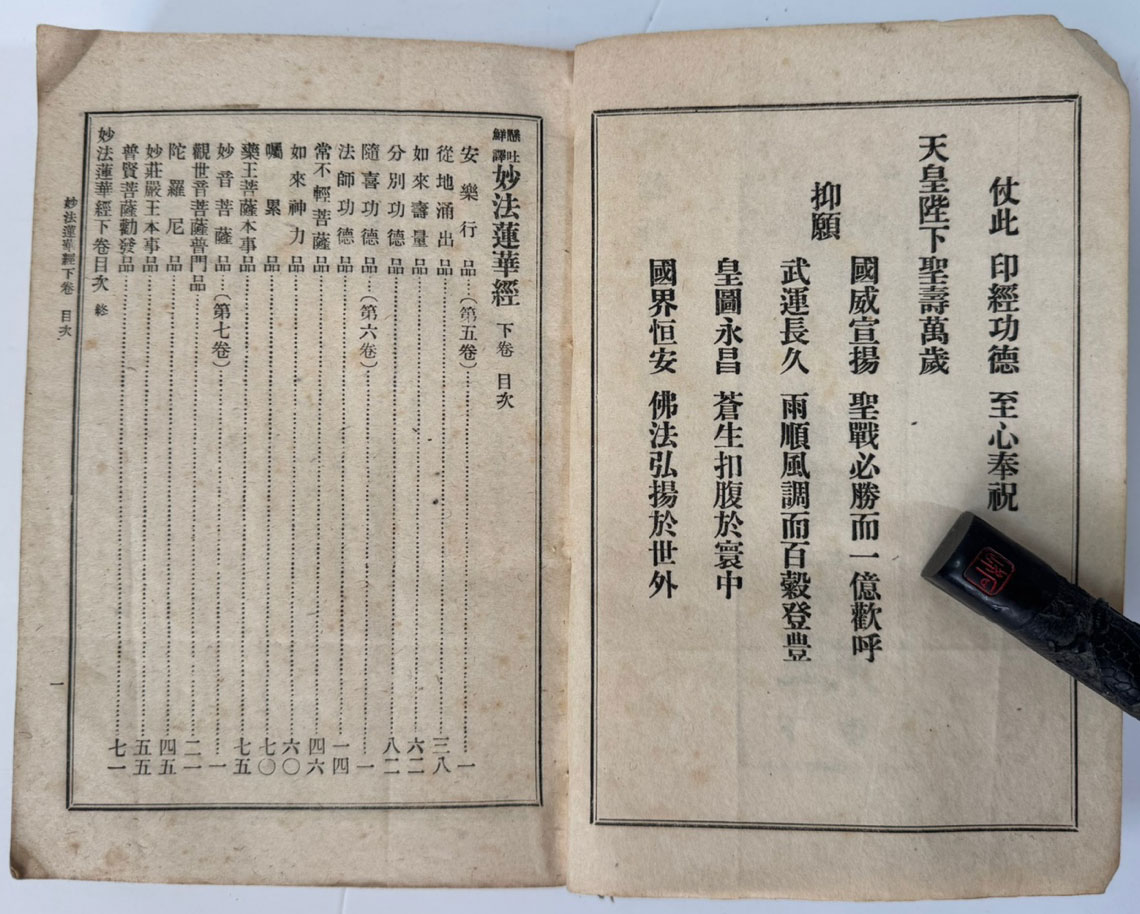 仗此 印經功德 至心奉祝
天皇陛下聖壽萬歲
抑願
國威宣揚 聖戰必勝而一億歡呼
武運長久 雨順風調而百穀登豊
皇圖永昌 蒼生扣腹於寰中
國界恒安 佛法弘揚於世外
懸吐鮮譯 妙法蓮華經 下卷 目次
安樂行品……(第五卷)……一
從地涌出品……三八
如來壽量品……六二
分別功德品……八二
隨喜功德品……(第六卷)……一
法師功德品……一四
常不輕菩薩品……四六
如來神力品……六〇
囑累品……七〇
藥王菩薩本事品……七五
妙音菩薩品……(第七卷)……一
觀世音菩薩普門品……二一
陀羅尼品……四五
妙莊嚴王本事品……五五
普賢菩薩勸發品……七一
妙法蓮華經下卷目次 終
妙法蓮華經下卷 目次
一